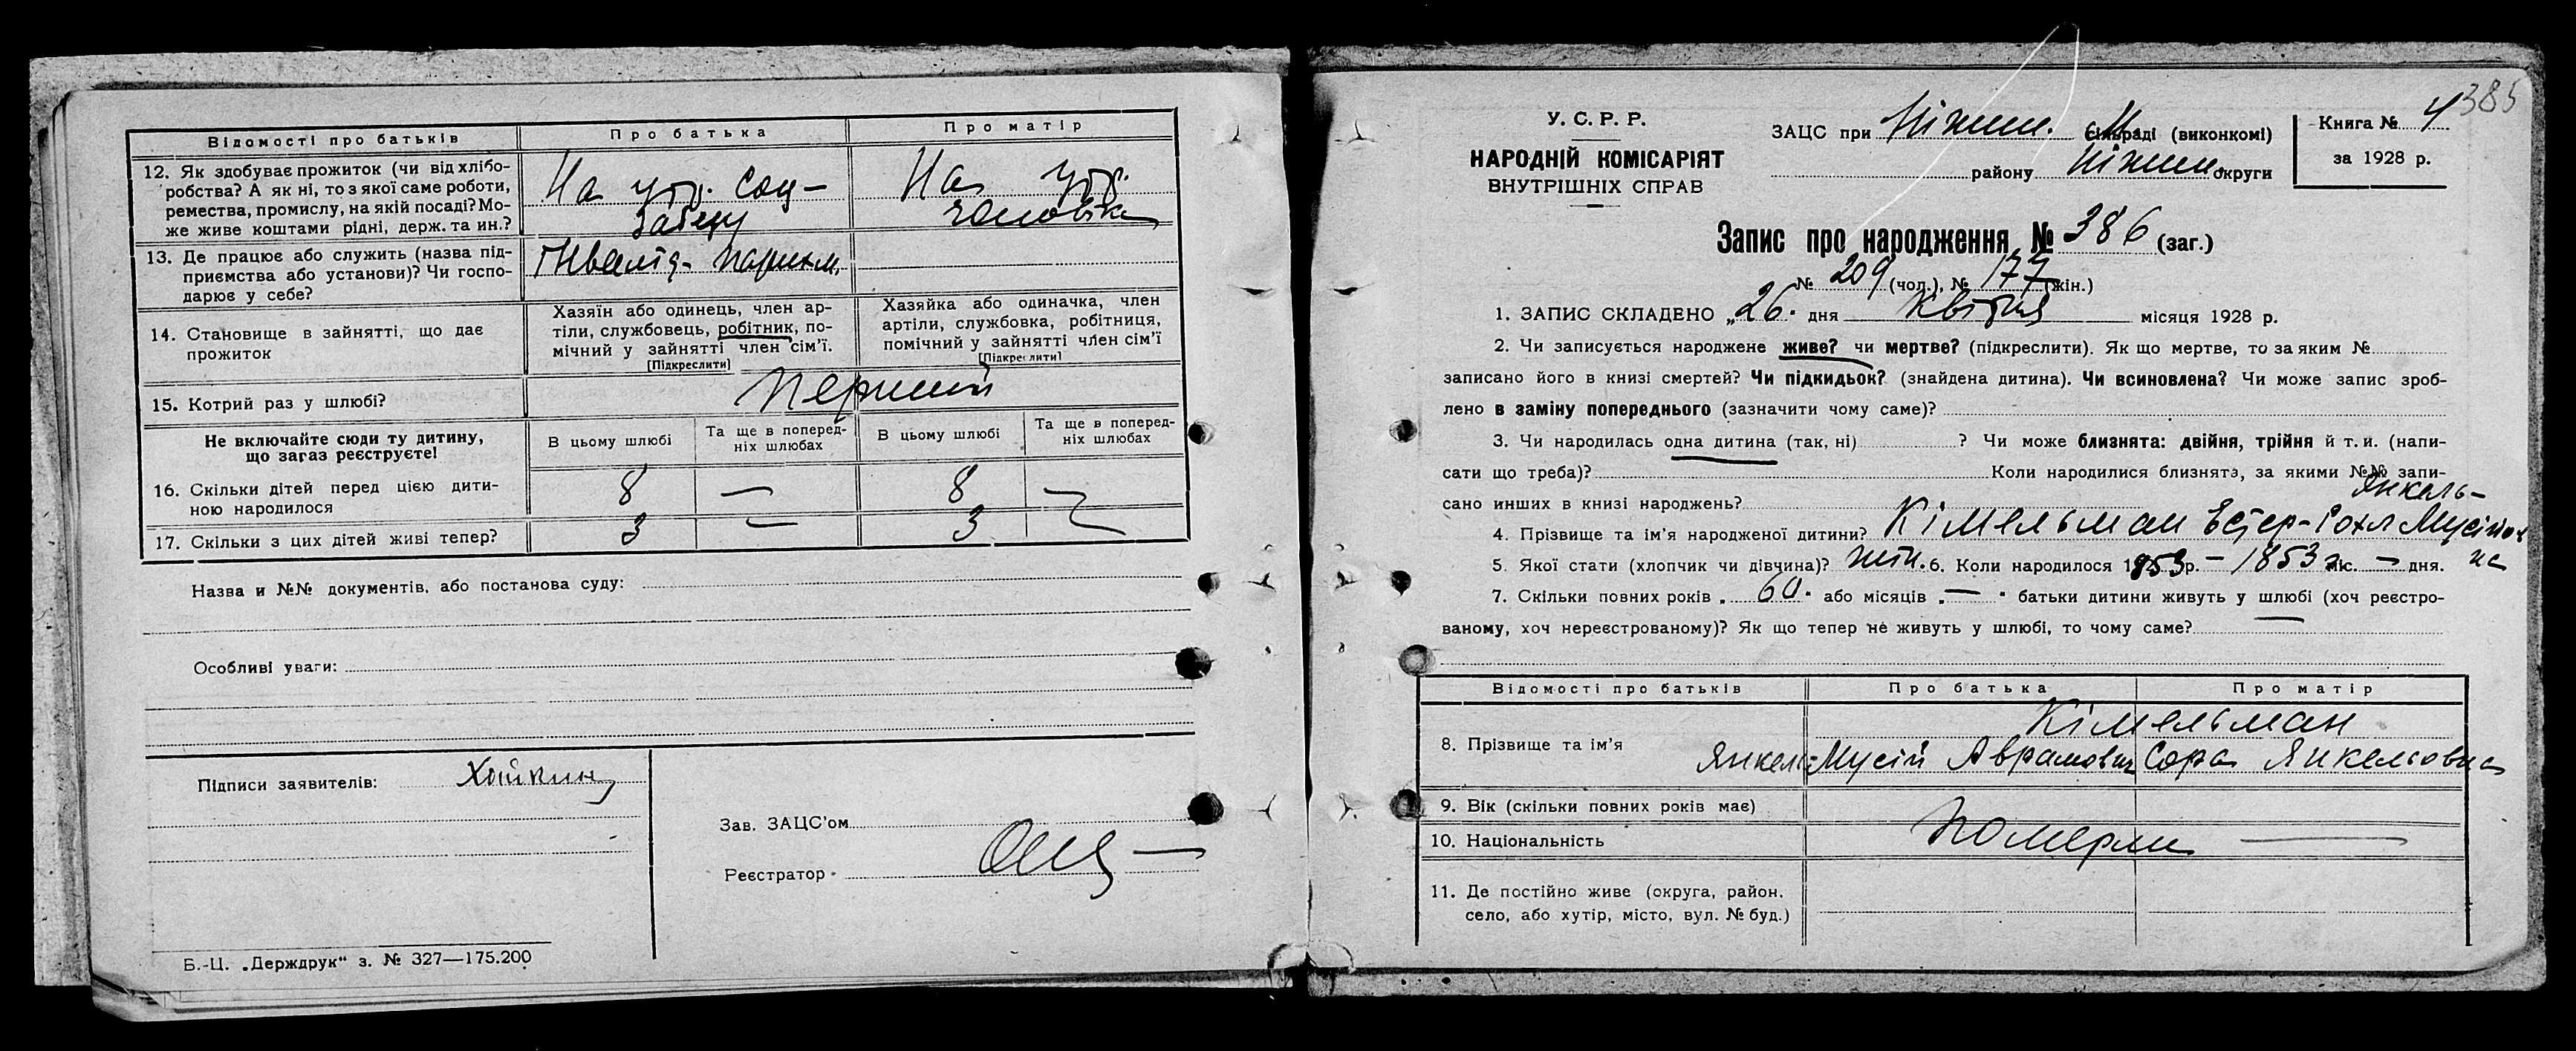 Відомості про батьків
Про батька
Про матір
12. Як здобуває прожиток (чи від хлібо-
робства? А як ні, то з якої саме роботи,
ремества, промислу, на якій посаді? Мо-
же живе коштами рідні, держ. та ин.?
На утр. Соц-
забезу
На утр.
чоловіка
13. Де працює або служить (назва під-
приємства або установи)? Чи госпо-
дарює у себе?
Інвалід-
14. Становище в зайнятті, що дає
прожиток
Хазяїн або одинець, член ар-
тіли, службовець, робітник, по-
мічний у зайнятті член сім'ї.
[Підкреслити]
Хазяйка або одиначка, член
артіли, службовка, робітниця,
помічний у зайнятті член сім'ї
[Підкреслити]
15. Котрий раз у шлюбі?
перший
Не включайте сюди ту дитину,
що зараз реєструєте!
В цьому шлюбі
Та ще в поперед-
ніх шлюбах
В цьому шлюбі
Та ще в поперед-
ніх шлюбах
16. Скільки дітей перед цією дити-
ною народилося
8 — 8 —
17. Скільки з цих дітей живі тепер?
3 — 3 —
Назва и №№ документів, або постанова суду:
Особливі уваги:
Підписи заявителів: Хайкин
Зав. ЗАЦС'ом
Реєстратор
Б.-Ц. „Держдрук“ з. № 327—175.200
385
У. С. Р. Р.
НАРОДНІЙ КОМІСАРІЯТ
ВНУТРІШНІХ СПРАВ
ЗАЦС при Ніжин. М. сільраді (виконкомі)
району Ніжин. округи
Книга № 4
за 1928 р.
Запис про народження № 386 (заг.)
№ 209 (чол.), № 177 (жін.)
1. ЗАПИС СКЛАДЕНО „26“ дня Квітня місяця 1928 р.
2. Чи записується народжене живе? чи мертве? (підкреслити). Як що мертве, то за яким №
записано його в книзі смертей? Чи підкидьок? (знайдена дитина). Чи всиновлена? Чи може запис зроб-
лено в заміну попереднього (зазначити чому саме)?
3. Чи народилась одна дитина (так, ні) ? Чи може близнята: двійня, трійня й т. и. (напи-
сати що треба)? Коли народилися близнята, за якими №№ запи-
сано инших в книзі народжень?
Янкель-
4. Прізвище та ім'я народженої дитини? Кімельман Естер-Рохл Мусіїов
на
5. Якої стати (хлопчик чи дівчина)? жін. 6. Коли народилося 1853 р. – 1853 міс. — дня.
7. Скільки повних років „60“ або місяців „—“ батьки дитини живуть у шлюбі (хоч реєстро-
ваному, хоч нереєстрованому)? Як що тепер не живуть у шлюбі, то чому саме?
Відомості про батьків
Про батька
Про матір
8. Прізвище та ім'я
Кімельман
Янкель-Мусій Аврамович
Сора Янкельовна
9. Вік (скільки повних років має)
10. Національність
померли —
11. Де постійно живе (округа, район,
село, або хутір, місто, вул. № буд.)